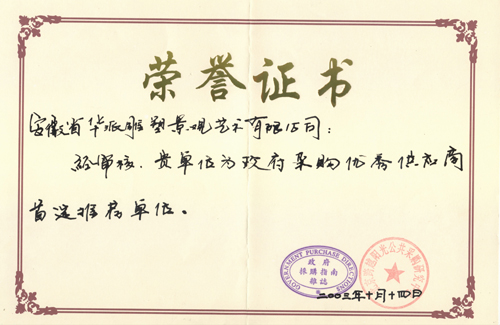 荣誉证书
安徽省华派雕塑景观艺术有限公司：
经审核，贵单位为政府采购优秀供应商
首选推荐单位。
GOVERNMENT PURCHASE DIRECTIONS
政府
採購指南
雜誌
二00三年十月十四日